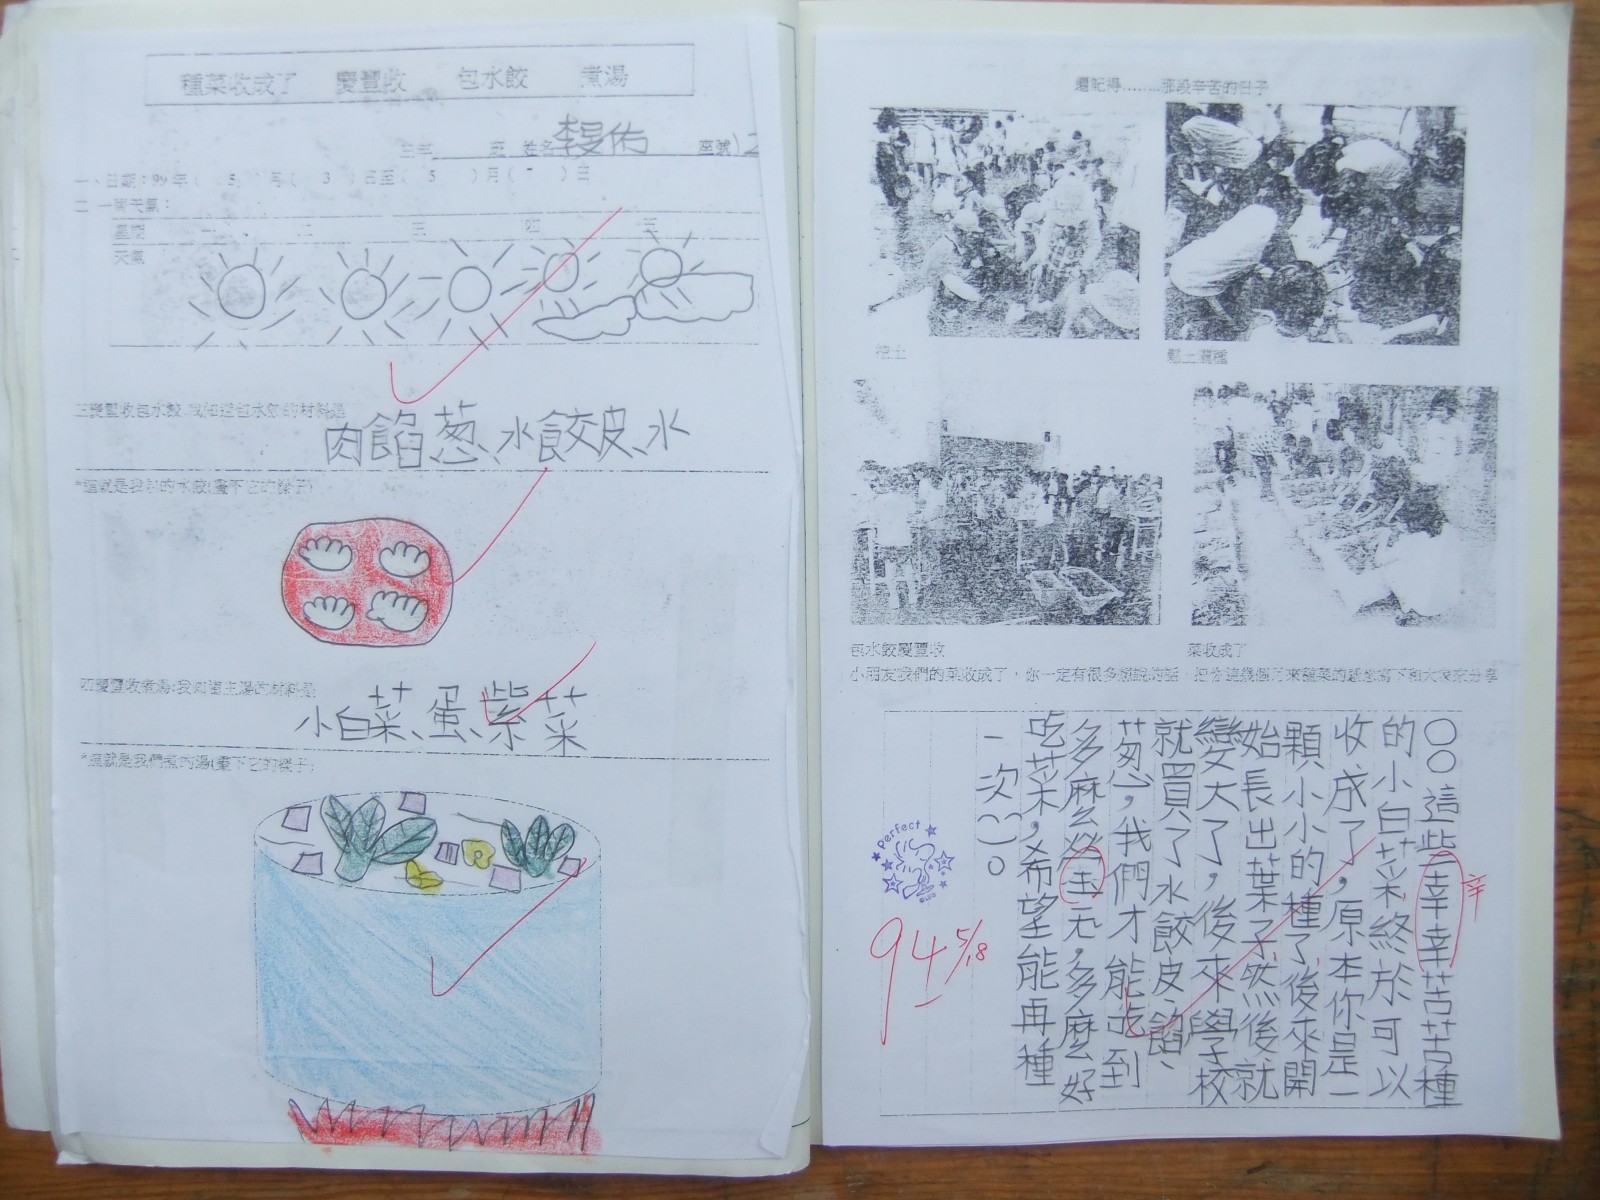 種菜收成了 慶豐收 包水餃 煮湯
班 姓名 李昊佑 座號 12
一、日期:99年( 5 )月( 3 )日至( 5 )月( 7 )日
二 一週天氣:
星期 一 二 三 四 五
天氣
三慶豐收包水餃,我知道包水餃的材料是
肉餡、葱、水餃皮、水
*這就是我包的水餃(畫下它的樣子)
四慶豐收煮湯:我知道煮湯的材料是
小白菜、蛋、紫菜
*這就是我們煮的湯(畫下它的樣子)
還記得........那段辛苦的日子
挖土
鬆土灑種
包水餃慶豐收
菜收成了
小朋友我們的菜收成了,你一定有很多想說的話,把你這幾個月來種菜的感想寫下和大家來分享
〇〇這些幸幸苦苦種
辛
的小白菜終於可以
收成了,原本你是一
顆小小的種子,後來開
始長出葉子,然後就
變大了,後來學校
就買了水餃皮、餡、
葱,我們才能吃到
多麼營元,多麼好
吃菜,希望能再種
一次〇〇。
Perfect
94
5/18